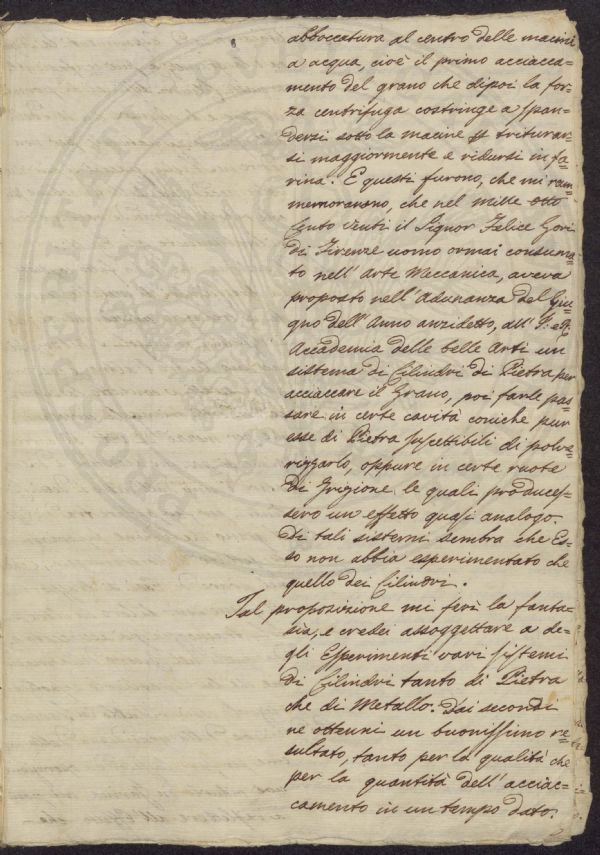 abboccatura al centro delle macini
a acqua, cioè il primo acciacca=
mento del grano che dipoi la for=
za centrifuga costringe a span=
dersi sotto la macine e triturar=
si maggiormente e ridursi in fa=
rina. E questi furono, che mi ram=
memorarono, che nel mille otto
cento venti il Signor Felice Gori
di Firenze uomo ormai consuma=
to nell'Arte Meccanica, aveva
proposto nell'Adunanza del Giu=
gno dell'Anno anzidetto, all'I. e R.
Accademia delle belle Arti un
sistema di Cilindri di Pietra per
acciaccare il Grano, poi farle pas=
sare in certe cavità coniche pur
esse di Pietra suscettibili di polve=
rizzarlo, oppure in certe ruote
di Frizione, le quali produces=
sero un effetto quasi analogo.
Di tali sistemi sembra che Es=
so non abbia esperimentato che
quello dei Cilindri.
Tal proposizione mi ferì la fanta=
sia, e credei assoggettare a de=
gli Esperimenti vari sistemi
di Cilindri tanto di Pietra
che di Metallo. Dai secondi
ne ottenni un buonissimo re=
sultato, tanto per la qualità che
per la quantità dell'acciac=
camento in un tempo dato.